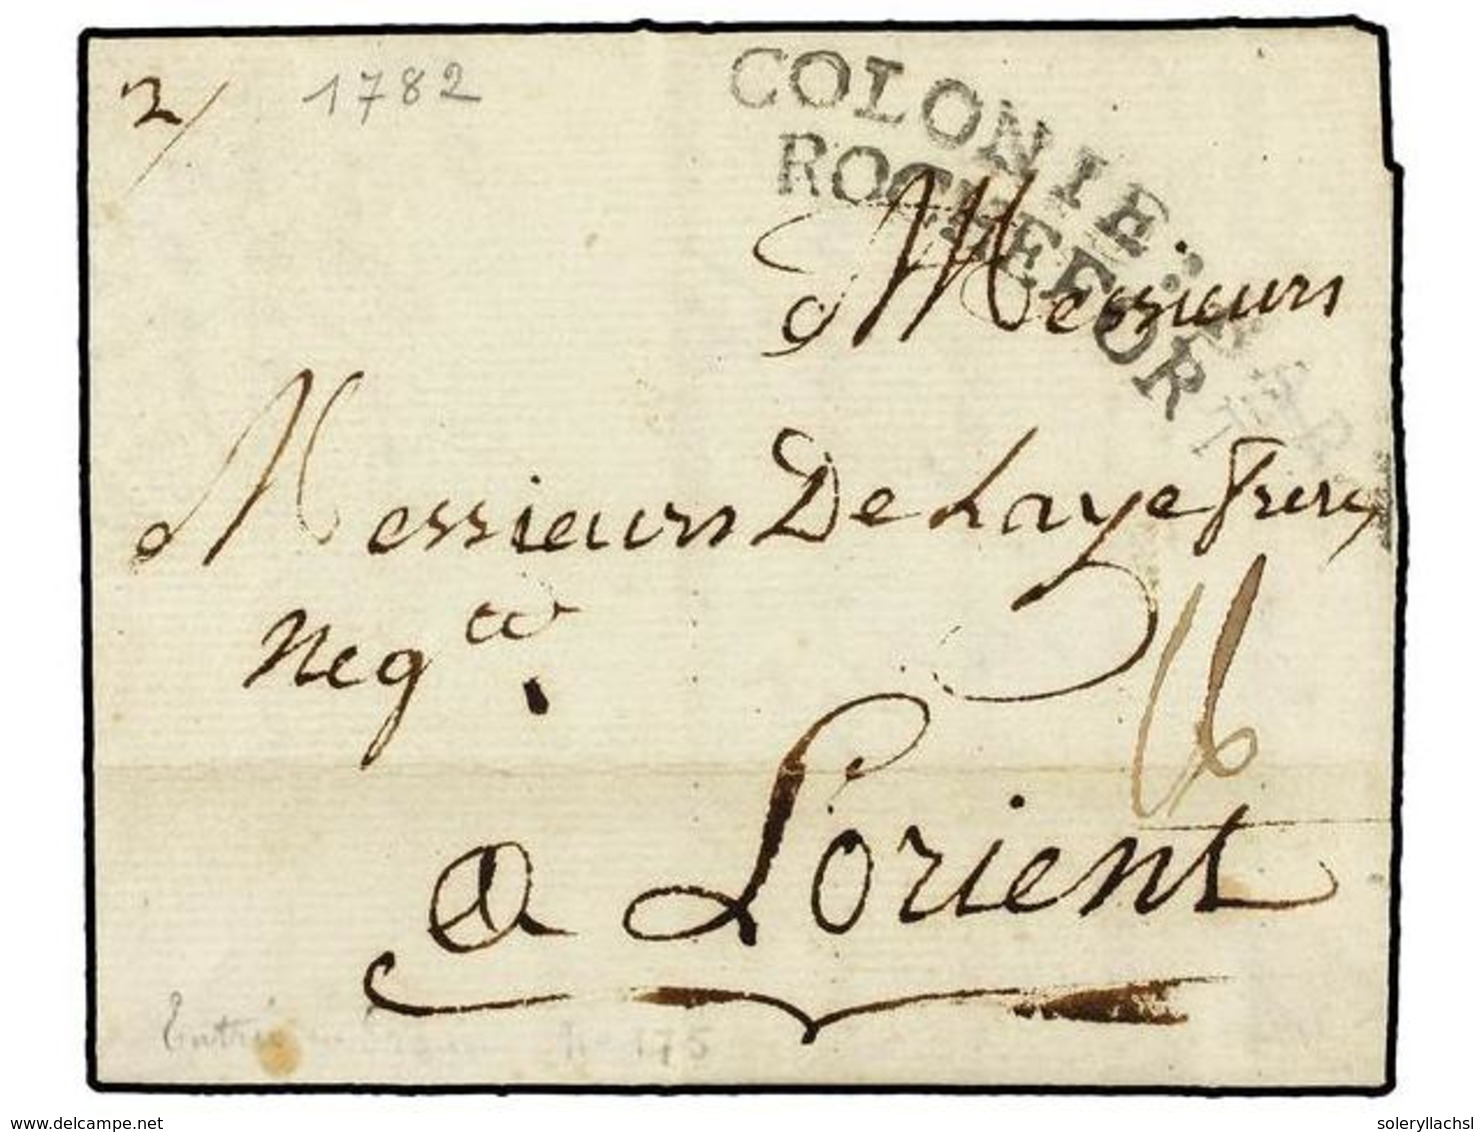 2/ 1782
COLONIE: PAR
ROCHEFORT
Messieurs
Messieurs De Laye freres
Negts
a Lorient
16
Entrée No 175
www.delcampe.net
soleryllachs1